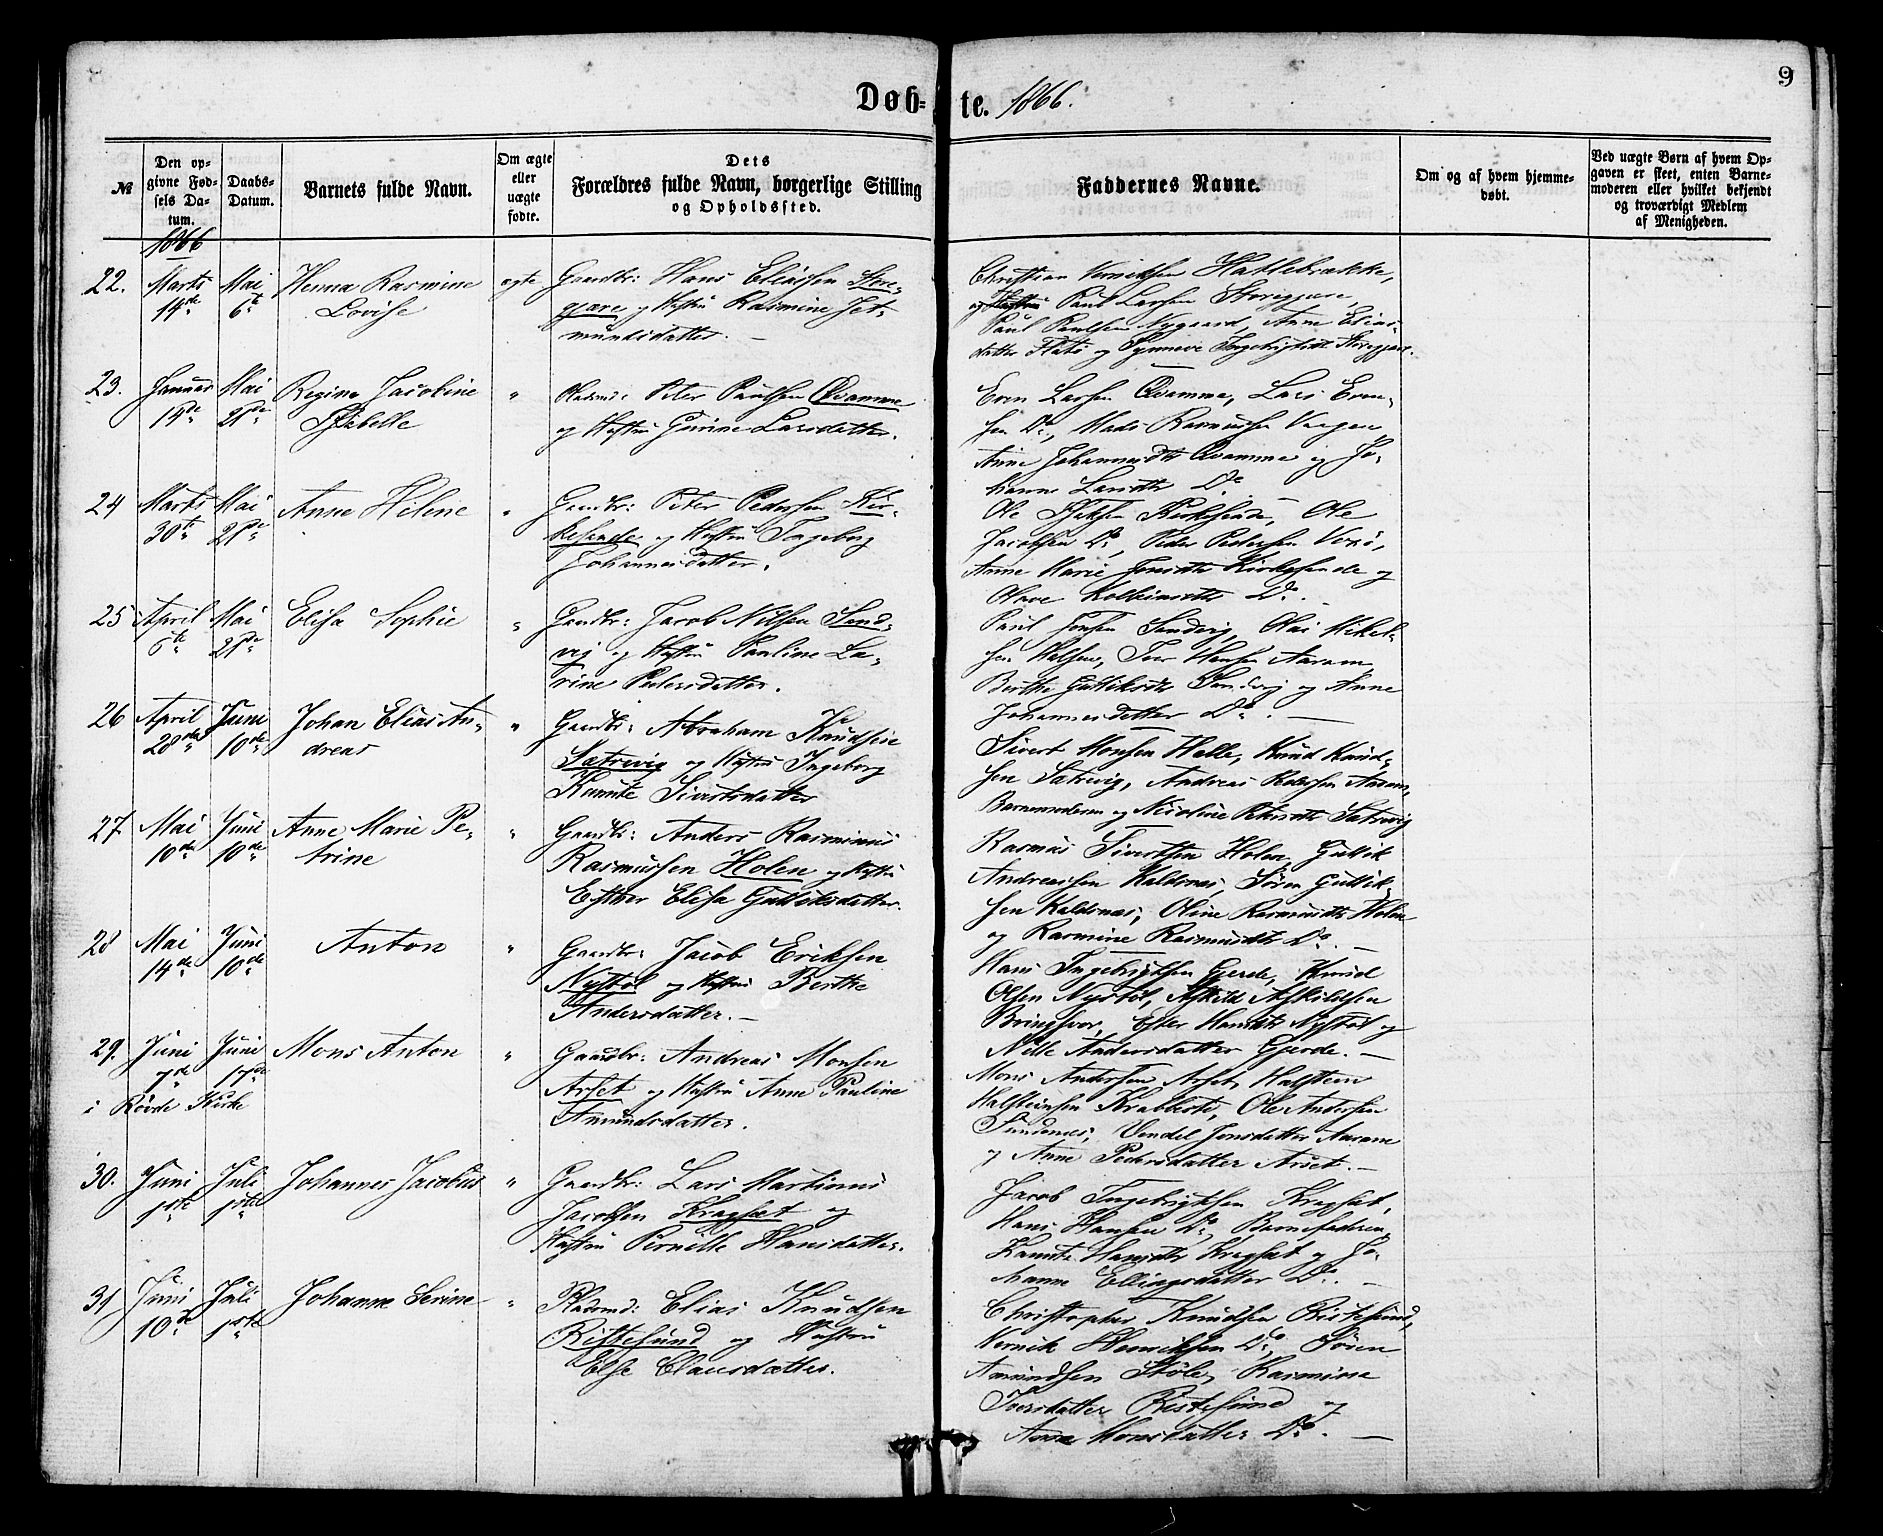 9
Døb- te. 1866.
№
Den opgivne Fødsels Datum.
Daabs-Datum.
Barnets fulde Navn.
Om ægte eller uægte fødte.
Dets Forældres fulde Navn, borgerlige Stilling og Opholdssted.
Faddernes Navne.
Om og af hvem hjemmedøbt.
Ved uægte Børn af hvem Opgaven er skeet, enten Barnemoderen eller hvilket bekjendt og troværdigt Medlem af Menigheden.
1866
22. Marts 14de Mai 6te
Rasmine
Lovise
ægte
Gaardbr: Hans Eliassen Store-
gjære og Hustru Rasmine Jet-
mundsdatter. —
Christian Hattebrække,
Paul Larsen Storegjære,
Paul Paulsen Nygaard, Anne Elias-
datter Flatø og Synneve Storegjære.
23. Januar 14de Mai 21de
Regine Jacobine
Isabelle
"
Pladsmd: Peter Paulsen Qvamme
og Hustru Gurine Larsdatter.
Even Larsen Qvamme, Lars Even-
sen Do, Mads Rasmussen Vaagen
Anne Johannesdtr Qvamme og Jo-
hanne Larsdtr Do
24 Marts 30te Mai 21de
Anne Helene
"
Gaardbr: Peter Pedersen Kir-
kesende og Hustru Ingeborg
Johannesdatter.
Ole Kirkesende, Ole
Jacobsen Do, Peder Pedersen
Anne Marie Jonsdtr Kirkesende og
Olave Kolbeinsdtr Do.
25 April 6te Mai 21de
Elisa Sophie
"
Gaardbr: Jacob Nilsen Sand-
vig og Hustru Pauline La-
rine Pedersdatter.
Paul Jonsen Sandvig, Olai Mikel-
sen Iver Hansen Aaram,
Berthe Guttiksdtr Sandvig og Anne
Johannesdatter Do. —
26 April 28de Juni 10de
Johan Elias An-
dreas
"
Gaardbr: Abraham Knudsen
Sætrevig og Hustru Ingeborg
Sivertsdatter
Sivert Monsen Helle, Knud Knud-
sen Sætrevig, Andreas Pedersen Aaram,
Barnemoderen og Nicoline Sætrevig
27 Mai 10de Juni 10de
Anne Marie Pe-
trine
"
Gaardbr: Anders Rasminus
Rasmussen Holen og Hustru
Esther Elisa Guttiksdatter.
Rasmus Sivertsen Holen, Guttik
Andreassen Kaldsnæs, Søren Guttik-
sen Kaldsnæs, Oline Rasmusdtr Holen
og Rasmine Rasmusdtr Do. —
28 Mai 14de Juni 10de
Anton
"
Gaardbr: Jacob Eriksen
Nystøl og Hustru Berthe
Andersdatter. —
Hans Ingebrigtsen Gjerde, Knud
Olsen Nystøl, Askild Askildsen
Bringsvor, Ester Hansdtr Nystøl og
Nille Andersdatter Gjerde. —
29. Juni 7de Juni 17de
i Rovde Kirke
Mons Anton
"
Gaardbr: Andreas Monsen
Arset og Hustru Anne Pauline
Amundsdatter.
Mons Andersen Arset, Halsteen
Halsteinsen Krabbestø, Ole Andersen
Vendel Jonsdatter Aaram
og Anne Pedersdatter Arset. —
30. Juni 1ste Juli 1ste
Johannes Jacobus
"
Gaardbr: Lars Martinus
Jacobsen Kragset og
Hustru Pernille Hansdatter.
Jacob Ingebrigtsen Kragset,
Hans Hansen Do, Barnefaderen,
Hansdtr Kragset og Jo-
hanne Ellingsdatter Do. —
31 Juni 10de Juli 1ste
Johanne Serine
"
Pladsmd: Elias Knudsen
Ristesund og Hustru
Else Clausdatter.
Christopher Knudsen Ristesund,
Vernik Henriksen Do, Søren
Amundsen Støle, Rasmine
Iversdatter Ristesund og
Anne Monsdatter Do. —